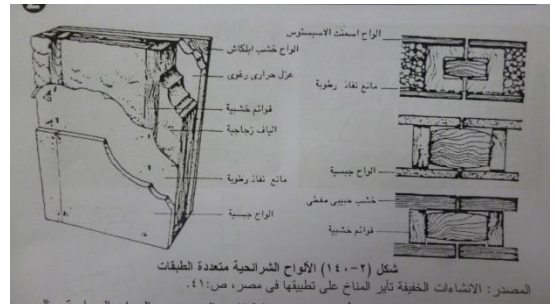 الواح خشب ابلكاش
عزل حرارى رغوى
قوائم خشبية
الياف زجاجية
مانع نفاذ رطوبة
الواح جبسية
الواح اسمنت الاسبستوس
مانع نفاذ رطوبة
الواح جبسية
خشب حبيبى مغطى
قوائم خشبية
شكل (٢-١٤٠) الألواح الشرائحية متعددة الطبقات
المصدر: الانشاءات الخفيفة تأثير المناخ على تطبيقها فى مصر، ص:٤١.